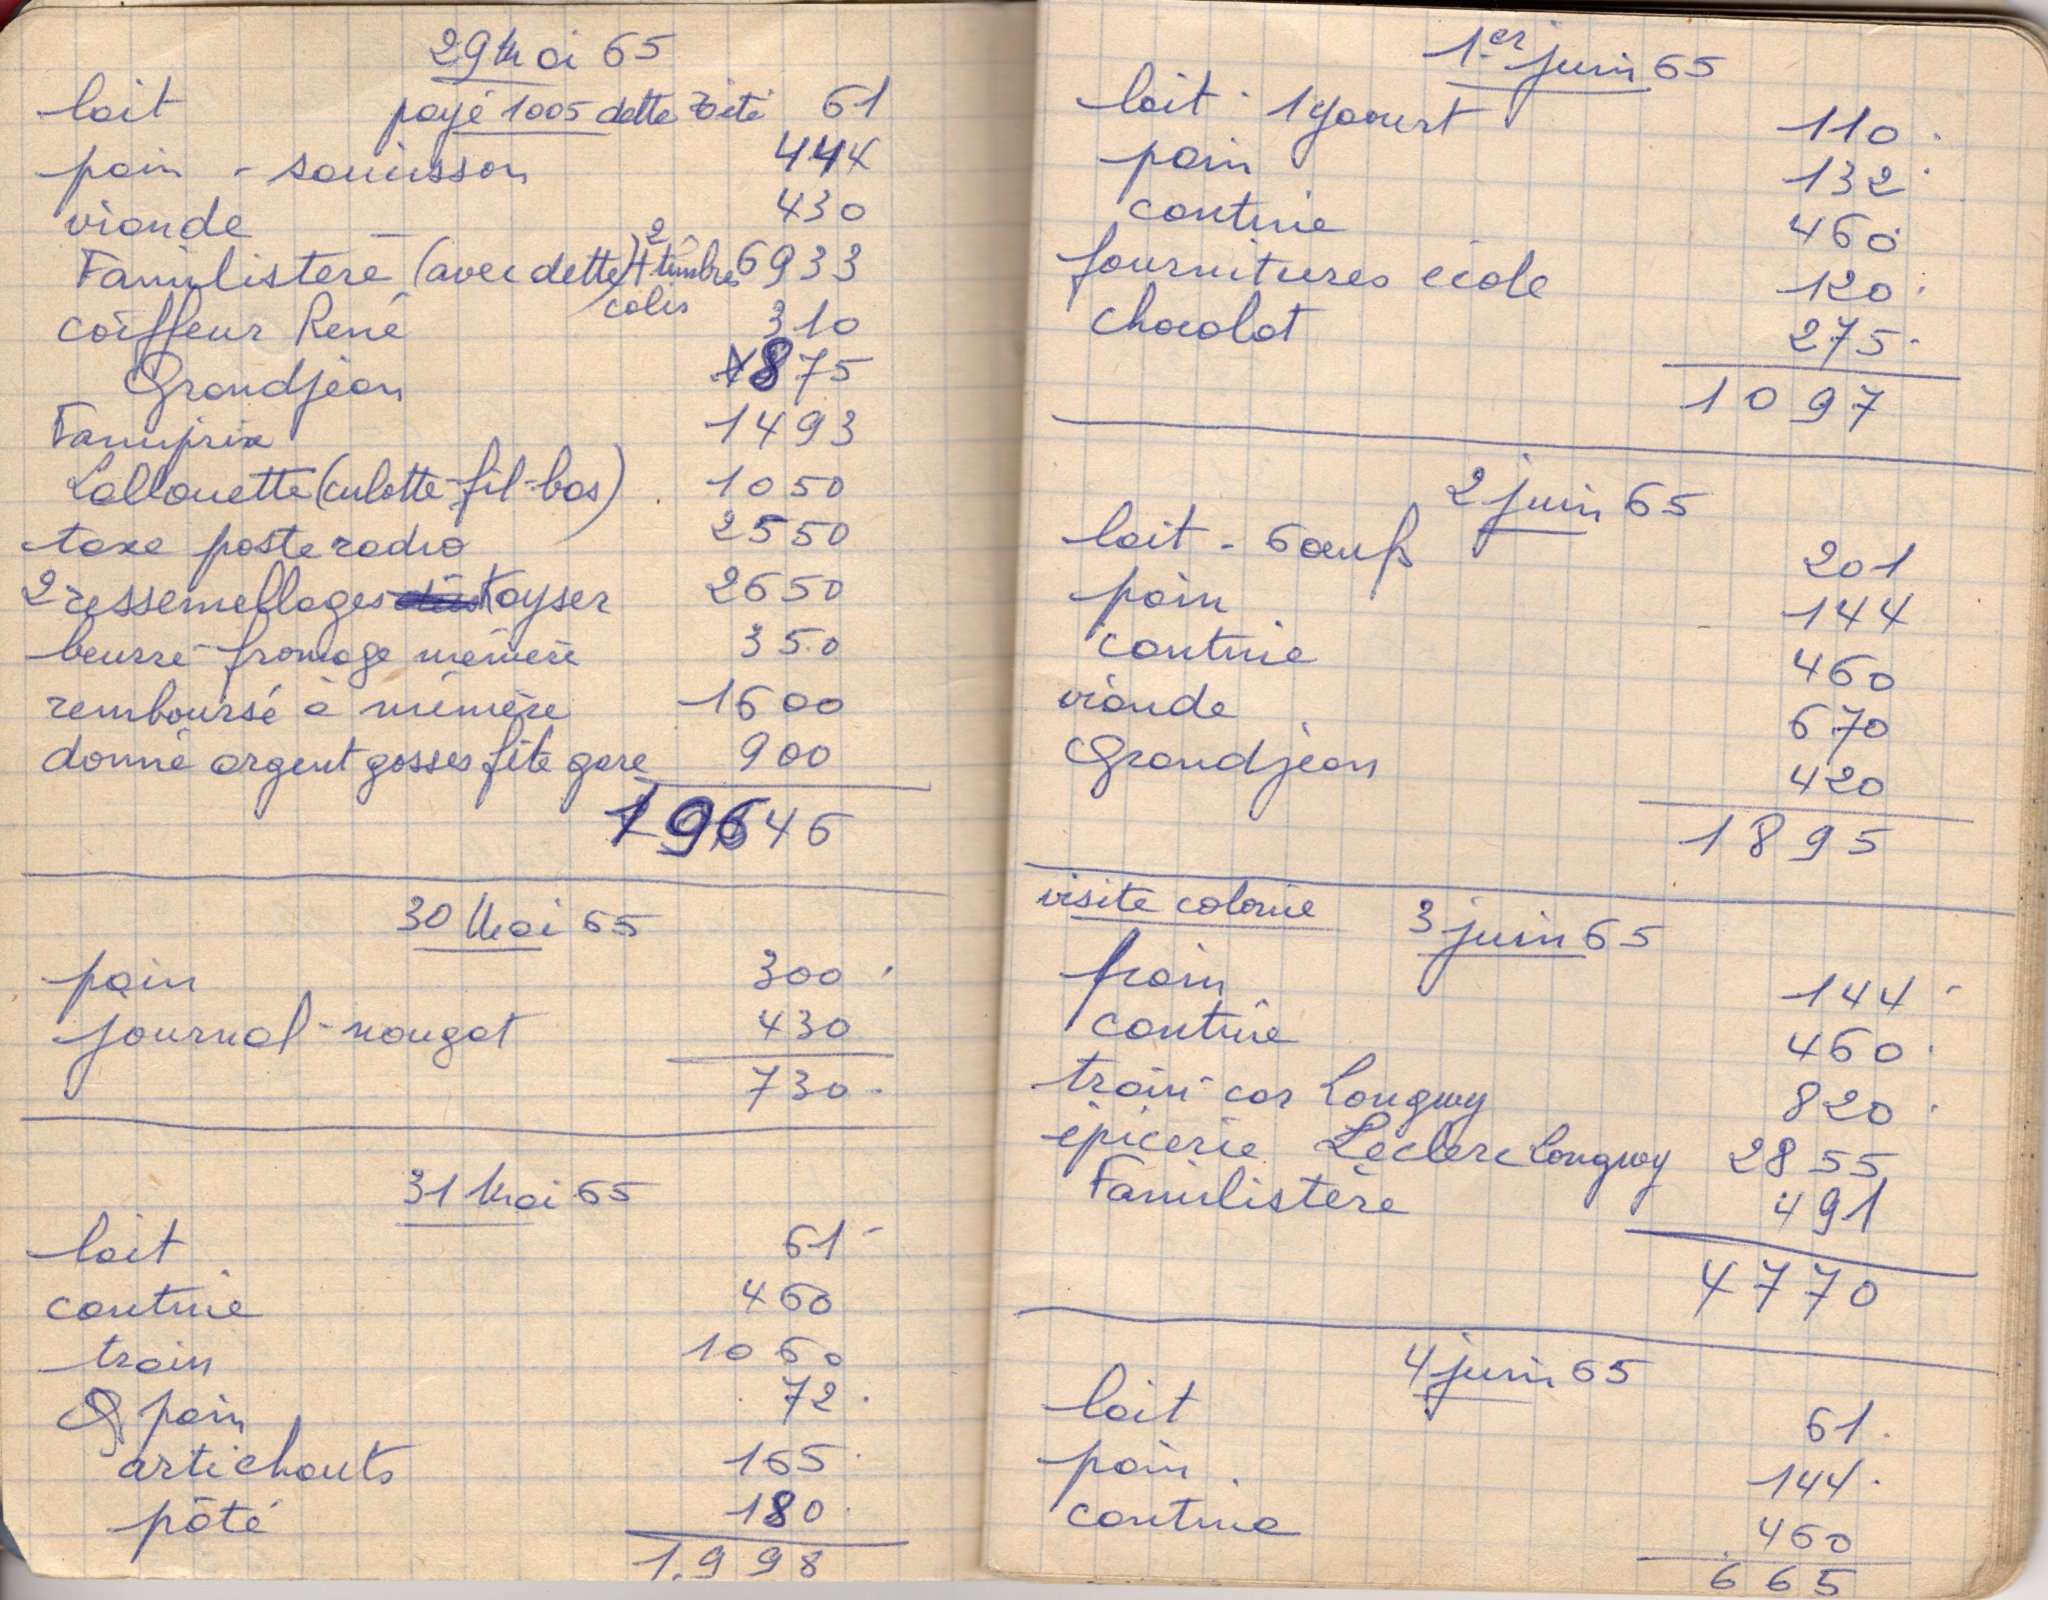 29 Mai 65
lait payé 1005 dette 61
pain - saucisson 444
viande 430
Familistère (avec dette) 2 timbres 6933
colis
coiffeur René 310
Grandjean 875
Famiprix 1493
Lallouette (culotte-fil-bas) 1050
taxe poste radio 2550
2 ressemellages Kayser 2650
beurre-fromage mémère 350
remboursé à mémère 1600
donné argent gosses fête gare 900
19646
30 Mai 65
pain 300
journal - nougat 430
730
31 Mai 65
lait 61
cantine 460
train 1060
pain 72
artichauts 165
pâté 180
1.998
1er juin 65
lait - 1 yaourt 110
pain 132
cantine 460
fournitures école 120
chocolat 275
1097
2 juin 65
lait - 6 œufs 201
pain 144
cantine 460
viande 670
Grandjean 420
1895
visite colonie 3 juin 65
pain 144
cantine 460
train-car Longwy 820
épicerie Leclerc Longwy 2855
Familistère 491
4770
4 juin 65
lait 61
pain 144
cantine 460
665